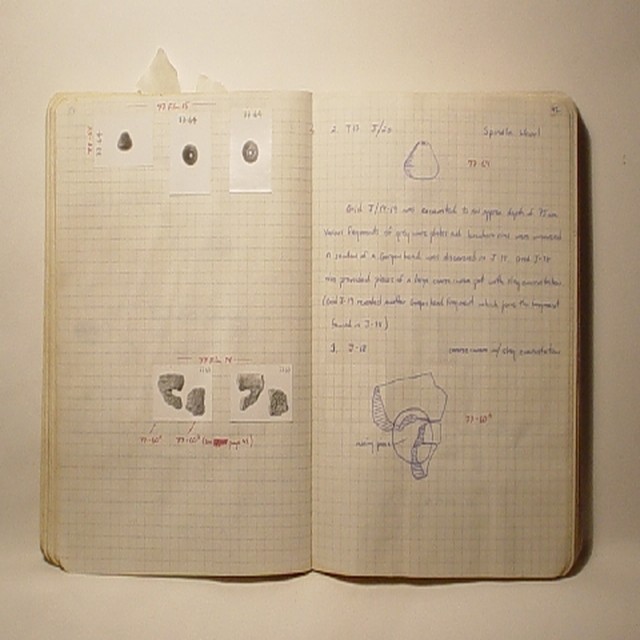 77 Film 15
77-64
77-64
77-64
77 Film 14
77-60ᴬ
77-60ᴮ (see page 41)
2. T17. J/20 Spindle Whorl
77-64
Grid J/18-19 was excavated to an approx depth of 75 cm
Various fragments of grey ware plates and were uncovered
A section of a Gorgon head was discovered in J-18. Grid J-18
also provided pieces of a large coarse ware pot with clay ornamentation
(Grid J-19 revealed another Gorgon head fragment which joins the fragment
found in J-18)
1. J-18 coarse ware w/ clay ornamentation
77-60ᴬ
missing piece